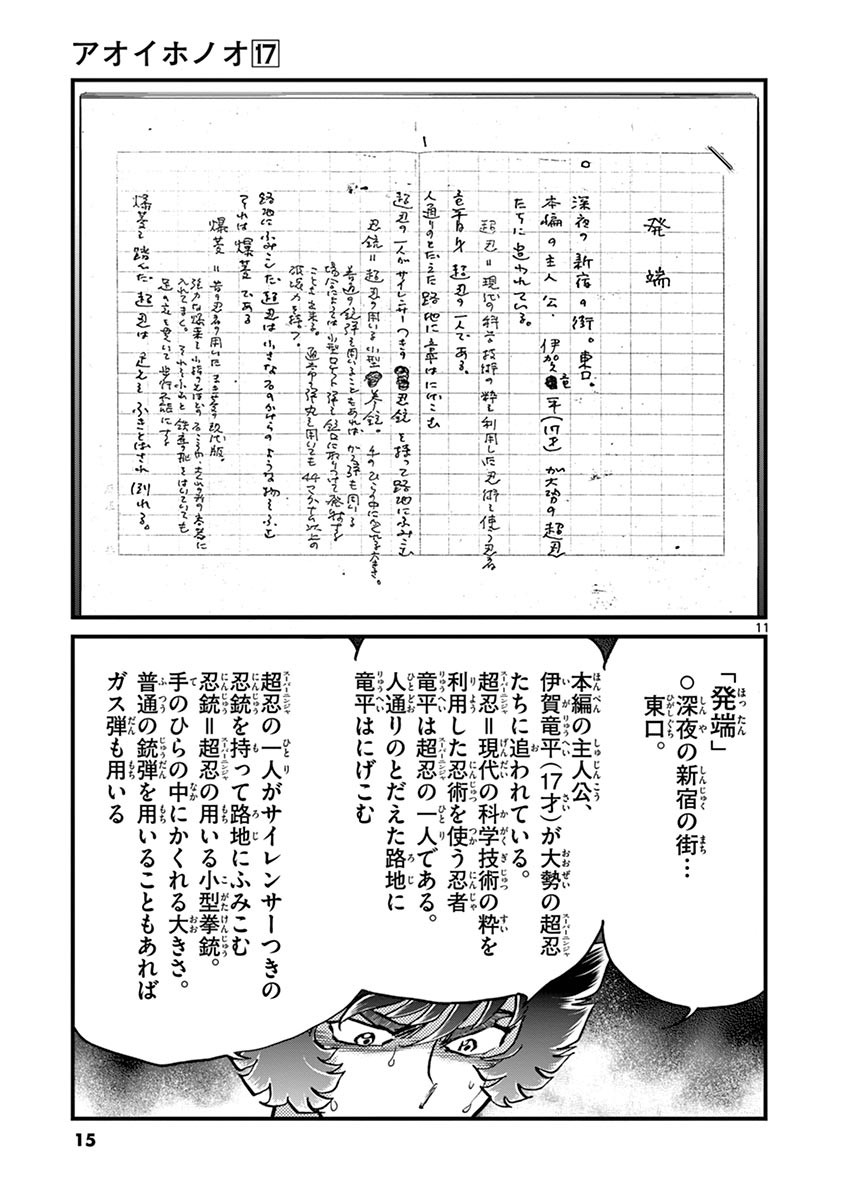 アオイホノオ17
発端
○
深夜の新宿の街。東口。
本編の主人公、伊賀竜平(17才)が大勢の超忍
たちに追われている。
超忍=現代の科学技術の粋を利用した忍術を使う忍者
竜平自身超忍の一人である。
人通りのとだえた路地に竜平はにげこむ
超忍の一人がサイレンサーつきの忍銃を持って路地にふみこむ
忍銃=超忍の用いる小型拳銃。手のひらの中にかくれる大きさ。
普通の銃弾を用いることもあればガス弾も用いる
場合によっては小型ロケット弾を銃口にとりつけて発射する
ことも出来る。通常弾丸を用いても44マグナム以上の
破壊力を持つ。
路地にふみこんだ超忍は小さな石のかけらのような物をふむ
それは爆菱である
爆菱=昔の忍者の用いたまき菱の現代版。
爆菱を踏んだ超忍は足をふきとばされ倒れる。
11
「発端」
○深夜の新宿の街…
東口。
本編の主人公、
伊賀竜平(17才)が大勢の超忍
たちに追われている。
超忍=現代の科学技術の粋を
利用した忍術を使う忍者
竜平は超忍の一人である。
人通りのとだえた路地に
竜平はにげこむ
超忍の一人がサイレンサーつきの
忍銃を持って路地にふみこむ
忍銃=超忍の用いる小型拳銃。
手のひらの中にかくれる大きさ。
普通の銃弾を用いることもあれば
ガス弾も用いる
15